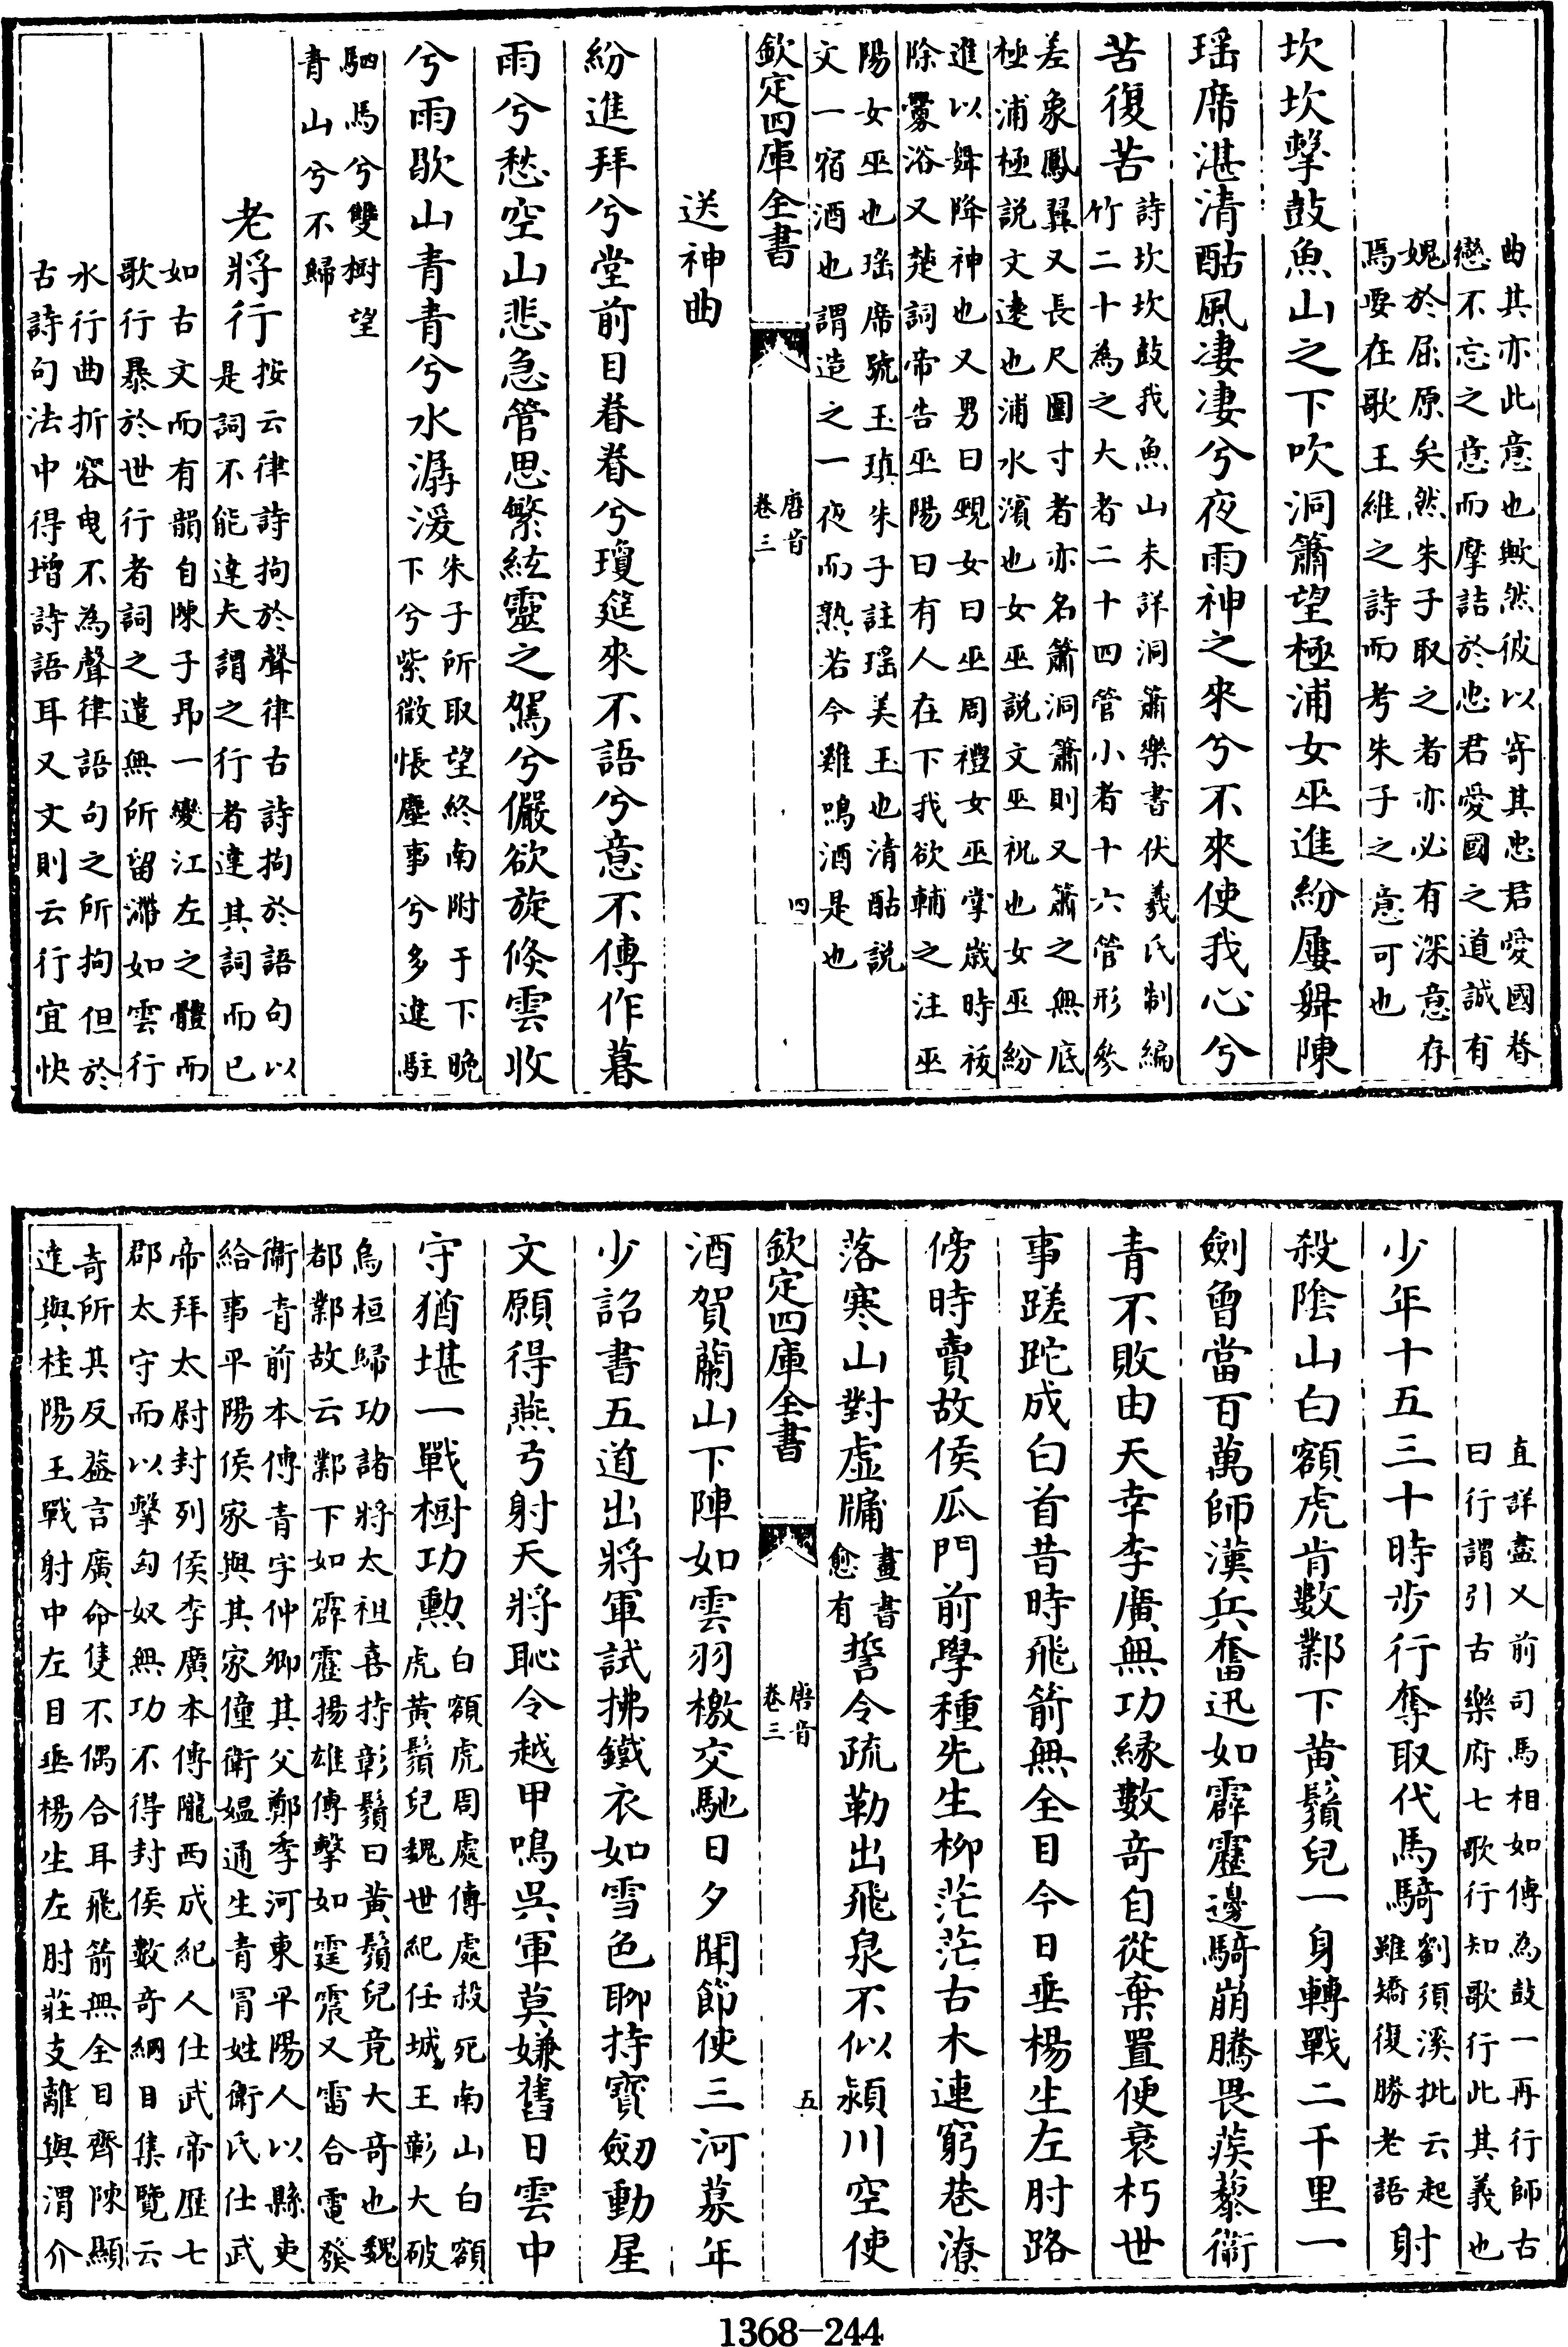 曲其亦此意也歟然彼以寄其忠君愛國眷
戀不忘之意而摩詰於忠君愛國之道誠有
媿於屈原矣然朱子取之者亦必有深意存
焉要在歌王維之詩而考朱子之意可也
坎坎擊鼓魚山之下吹洞簫望極浦女巫進紛屢舞陳
瑶席湛清酤風淒淒兮夜雨神之來兮不來使我心兮
苦復苦
詩坎坎鼓我魚山未詳洞簫樂書伏羲氏制編
竹二十為之大者二十四管小者十六管形參
差象鳳翼又長尺圍寸者亦名簫洞簫則又簫之無底
極浦極説文逺也浦水濱也女巫説文巫祝也女巫紛
進以舞降神也又男曰覡女曰巫周禮女巫掌歳時祓
除釁浴又楚詞帝告巫陽曰有人在下我欲輔之注巫
陽女巫也瑶席號玉瑱朱子註瑶美玉也清酤説
文一宿酒也謂造之一夜而熟若今雞鳴酒是也
欽定四庫全書
唐音
卷三
四
送神曲
紛進拜兮堂前目眷眷兮瓊筵來不語兮意不傳作暮
雨兮愁空山悲急管思繁絃靈之駕兮儼欲旋倏雲收
兮雨歇山青青兮水潺湲
朱子所取望終南附于下晚
下兮紫微悵塵事兮多違駐
駟馬兮雙樹望
青山兮不歸
老將行
按云律詩拘於聲律古詩拘於語句以
是詞不能達夫謂之行者達其詞而已
如古文而有韻自陳子昂一變江左之體而
歌行暴於世行者詞之遣無所留滯如雲行
水行曲折容曳不為聲律語句之所拘但於
古詩句法中得增詩語耳又文則云行宜快
直詳盡又前司馬相如傳為鼓一再行師古
曰行謂引古樂府七歌行知歌行此其義也
少年十五三十時步行奪取代馬騎
劉須溪批云起
雖矯復勝老語
射
殺陰山白額虎肯數鄴下黄鬚兒一身轉戰二千里一
劍曾當百萬師漢兵奮迅如霹靂邊騎崩騰畏蒺藜衛
青不敗由天幸李廣無功縁數奇自從棄置便衰朽世
事蹉跎成白首昔時飛箭無全目今日垂楊生左肘路
傍時賣故侯瓜門前學種先生柳茫茫古木連窮巷潦
落寒山對虚牖
畫書
愈有
誓令疏勒出飛泉不似潁川空使
欽定四庫全書
唐音
卷三
五
酒賀蘭山下陣如雲羽檄交馳日夕聞節使三河募年
少詔書五道出將軍試拂鐵衣如雪色聊持寳劒動星
文願得燕弓射天將恥令越甲鳴吳軍莫嫌舊日雲中
守猶堪一戰樹功勲
白額虎周處傳處殺死南山白額
虎黄鬚兒魏世紀任城王彰大破
烏桓歸功諸將太祖喜持彰鬚曰黄鬚兒竟大奇也魏
都鄴故云鄴下如霹靂揚雄傳擊如霆震又雷合電發
衞青前本傳青字仲卿其父鄭季河東平陽人以縣吏
給事平陽侯家與其家僮衛媼通生青冒姓衛氏仕武
帝拜太尉封列侯李廣本傳隴西成紀人仕武帝歴七
郡太守而以擊匈奴無功不得封侯數奇綱目集覽云
奇所其反葢言廣命隻不偶合耳飛箭無全目齊陳顯
達與桂陽王戰射中左目垂楊生左肘莊支離與渭介
1368-244